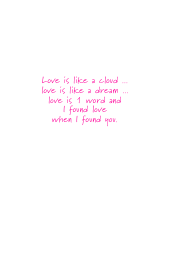 Love is like a cloud ...
love is like a dream ...
love is 1 word and
I found love
when I found you.